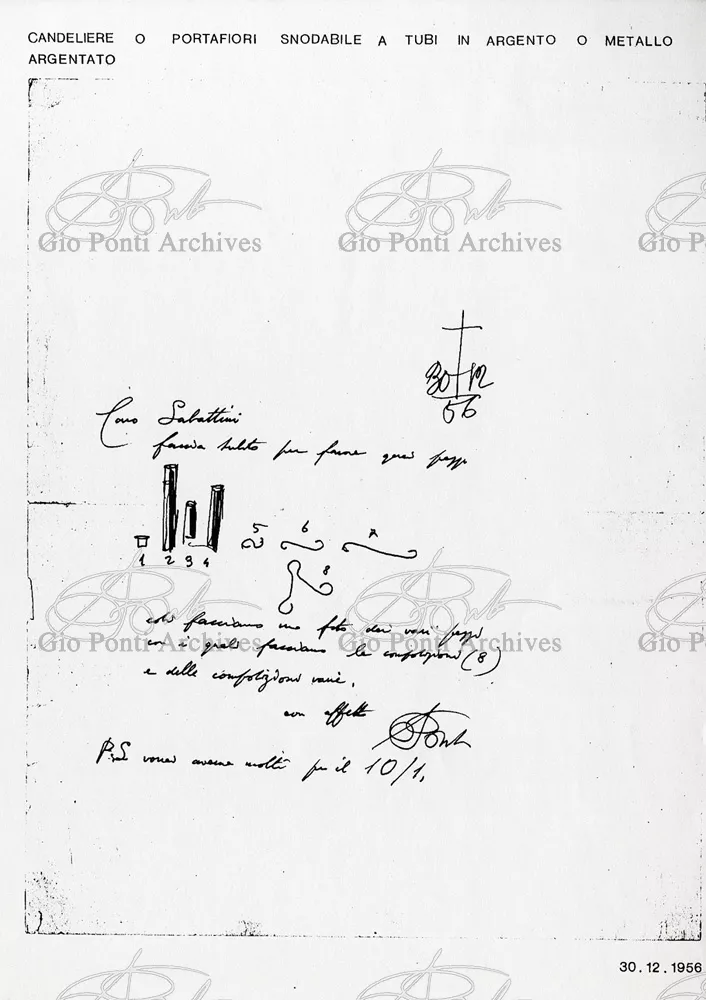 CANDELIERE O PORTAFIORI SNODABILE A TUBI IN ARGENTO O METALLO
ARGENTATO
Gio Ponti Archives Gio Ponti Archives Gio P
30 12
56
Caro Sabattini
faccia subito per farne questi pezzi
1 2 3 4 5 6 7 8
così facciamo una foto dei vari pezzi
con i quali facciamo le composizioni (8)
Gio Ponti Archives Gio Ponti Archives Gio P
e delle composizioni varie,
con affetto
Ponti
P.S vorrei averne molti per il 10/1,
30.12.1956